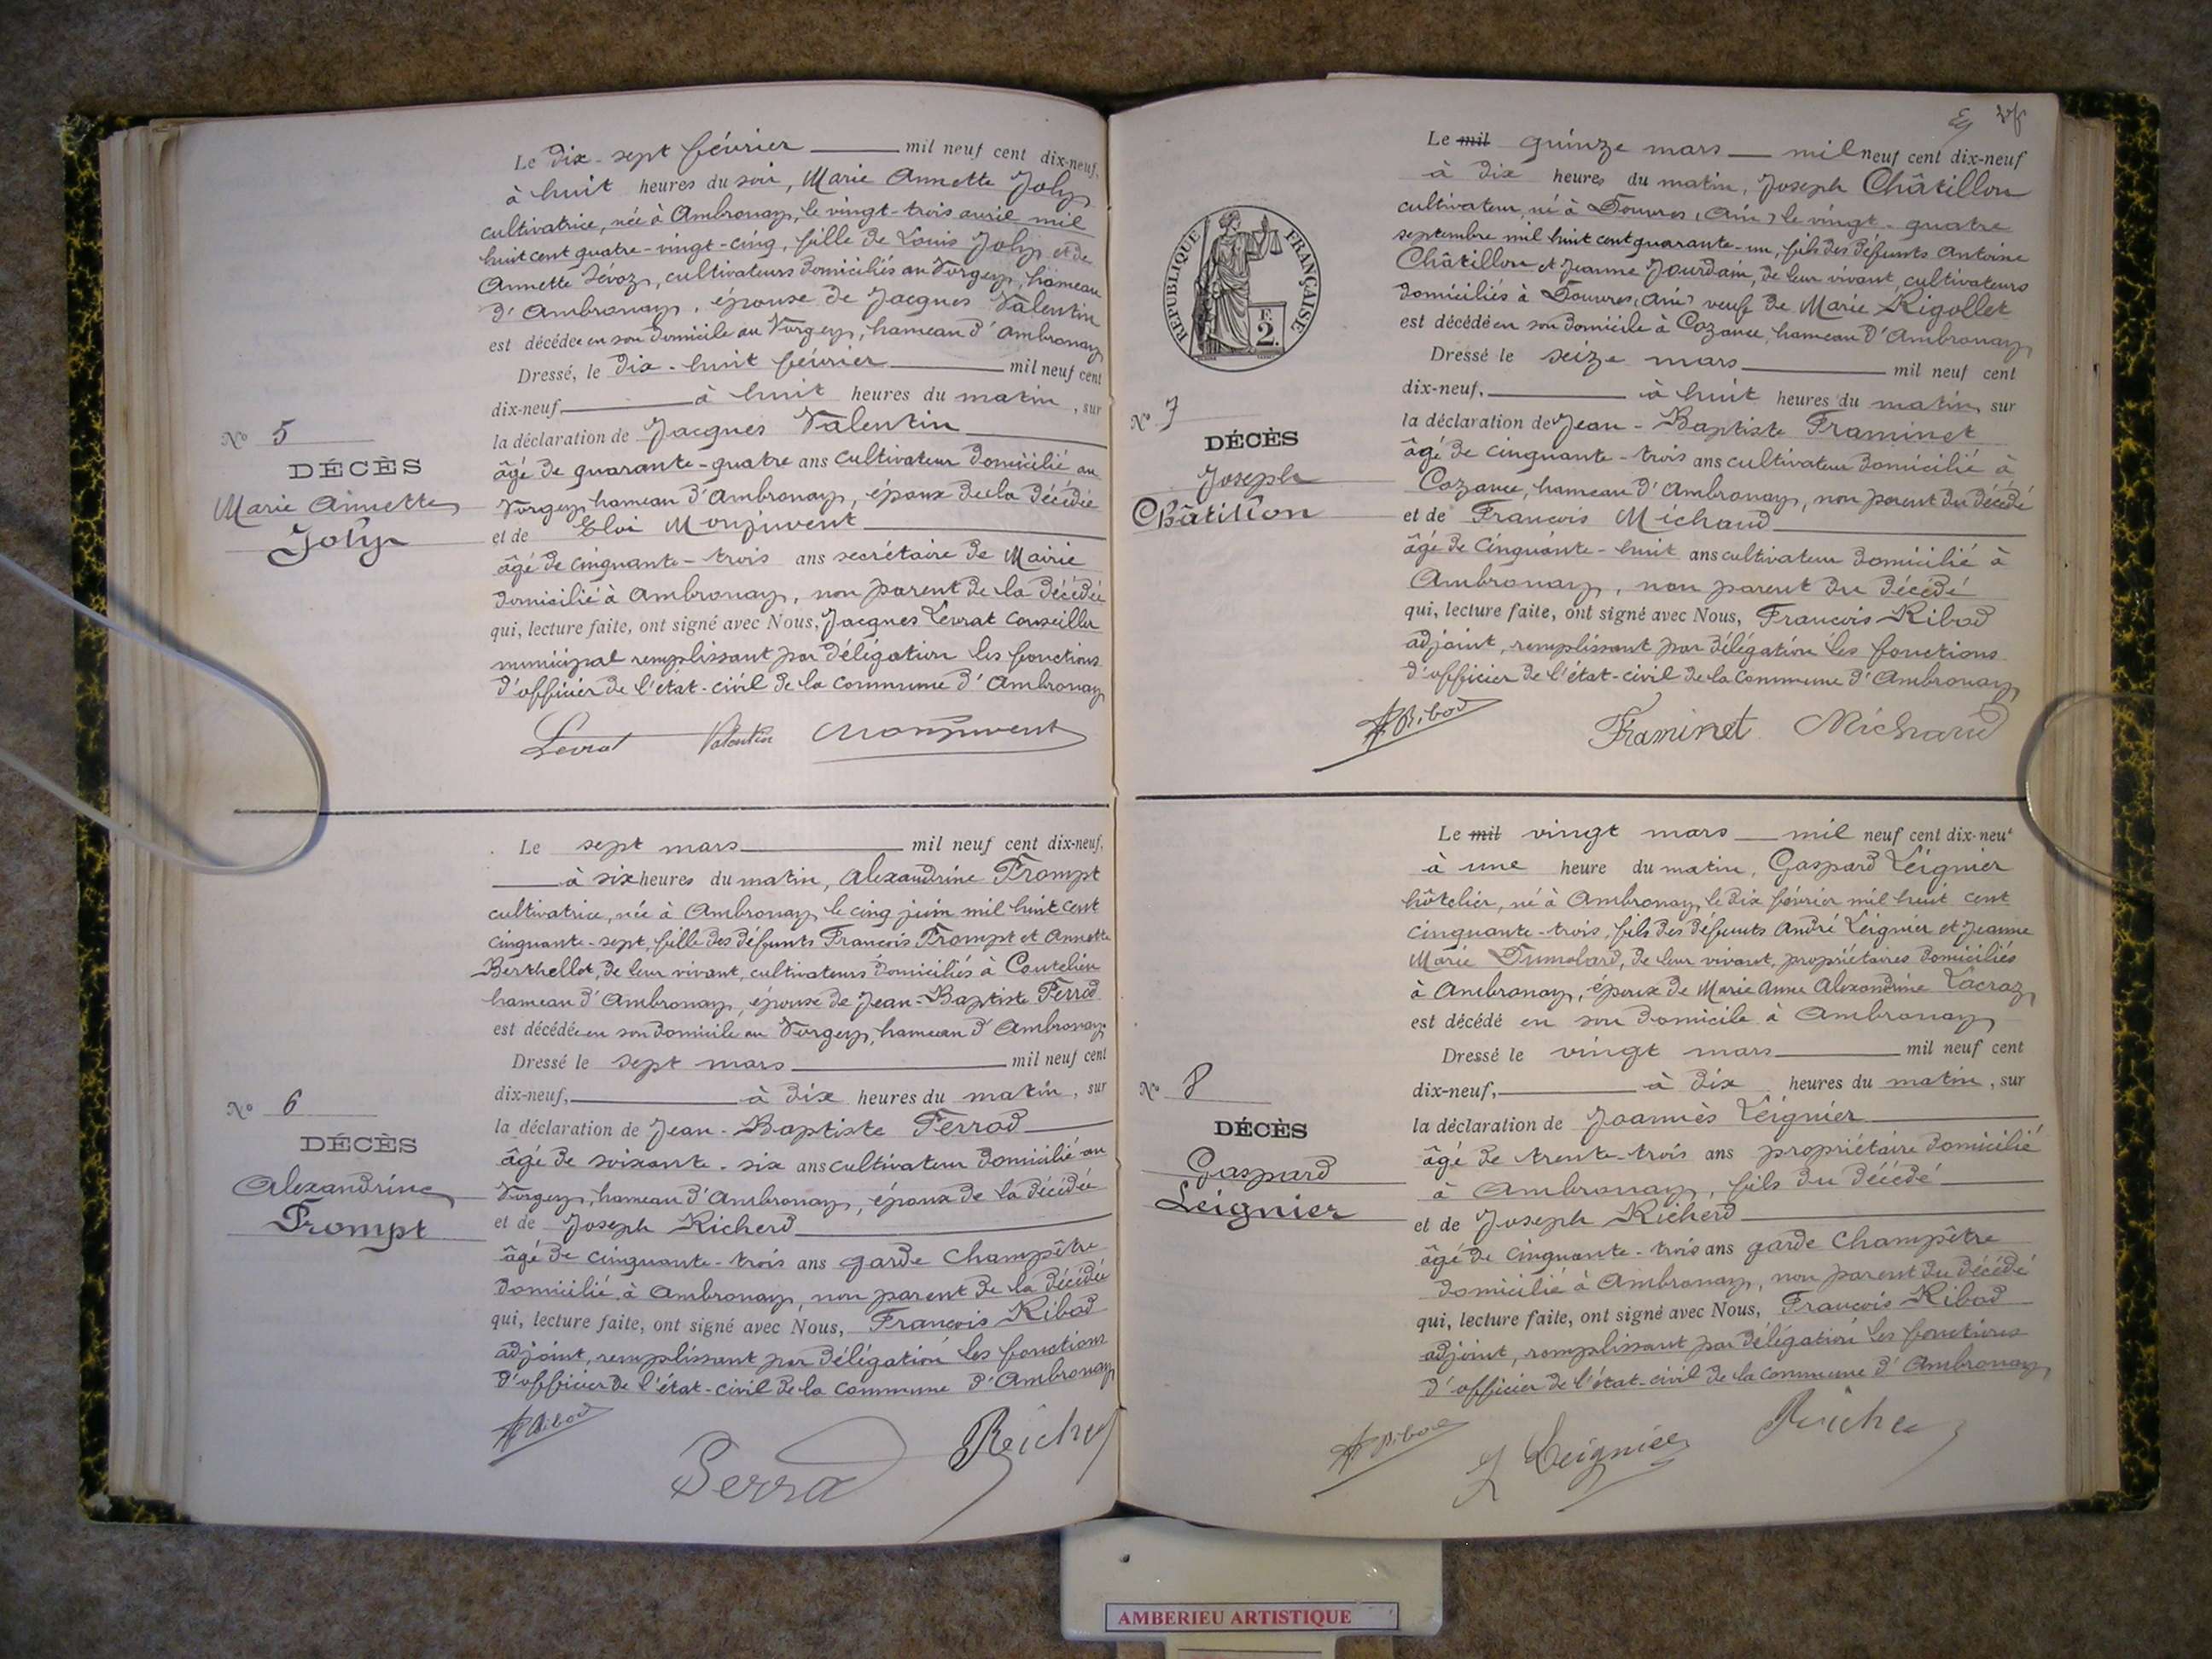 Le dix-sept février mil neuf cent dix-neuf,
à huit heures du soir, Marie Annette Joly
cultivatrice, née à Ambronay, le vingt-trois avril mil
huit cent quatre-vingt-cinq, fille de Louis Joly et de
Annette Sévoz, cultivateurs domiciliés au Vorgey, hameau
d'Ambronay, épouse de Jacques Valentin
est décédée en son domicile au Vorgey, hameau d'Ambronay
Dressé, le dix-huit février mil neuf cent
dix-neuf à huit heures du matin, sur
la déclaration de Jacques Valentin
âgé de quarante-quatre ans cultivateur domicilié au
Vorgey, hameau d'Ambronay, époux de la décédée
et de Eloi Monjuvent
âgé de cinquante-trois ans secrétaire de Mairie
domicilié à Ambronay, non parent de la décédée
qui, lecture faite, ont signé avec Nous, Jacques Levrat conseiller
municipal remplissant par délégation les fonctions
d'officier de l'état-civil de la commune d'Ambronay
Levrat Valentin Monjuvent
No 5
DÉCÈS
Marie Annette
Joly
Le sept mars mil neuf cent dix-neuf,
à six heures du matin, Alexandrine Prompt
cultivatrice, née à Ambronay, le cinq juin mil huit cent
cinquante-sept, fille des défunts François Prompt et Annette
Berthellot, de leur vivant, cultivateurs domiciliés à Coutelieu
hameau d'Ambronay, épouse de Jean-Baptiste Ferrod
est décédée en son domicile au Vorgey, hameau d'Ambronay
Dressé le sept mars mil neuf cent
dix-neuf, à dix heures du matin, sur
la déclaration de Jean-Baptiste Ferrod
âgé de soixante-six ans cultivateur domicilié au
Vorgey, hameau d'Ambronay, époux de la décédée
et de Joseph Richerd
âgé de cinquante-trois ans garde champêtre
domicilié à Ambronay, non parent de la décédée
qui, lecture faite, ont signé avec Nous, François Ribod
adjoint, remplissant par délégation les fonctions
d'officier de l'état-civil de la commune d'Ambronay
Ribod Ferrod Richerd
No 6
DÉCÈS
Alexandrine
Prompt
Le mil quinze mars mil neuf cent dix-neuf
à dix heures du matin, Joseph Châtillon
cultivateur, né à Douvres (Ain) le vingt-quatre
septembre mil huit cent quarante-un, fils des défunts Antoine
Châtillon et Jeanne Jourdain, de leur vivant, cultivateurs
domiciliés à Douvres (Ain) veuf de Marie Rigollet
est décédé en son domicile à Cozance, hameau d'Ambronay
Dressé le seize mars mil neuf cent
dix-neuf, à huit heures du matin, sur
la déclaration de Jean-Baptiste Framinet
âgé de cinquante-trois ans cultivateur domicilié à
Cozance, hameau d'Ambronay, non parent du décédé
et de François Michaud
âgé de cinquante-huit ans cultivateur domicilié à
Ambronay, non parent du décédé
qui, lecture faite, ont signé avec Nous, François Ribod
adjoint, remplissant par délégation les fonctions
d'officier de l'état-civil de la commune d'Ambronay
Ribod Framinet Michaud
RÉPUBLIQUE FRANÇAISE
F.
2.
No 7
DÉCÈS
Joseph
Châtillon
Le mil vingt mars mil neuf cent dix-neuf
à une heure du matin, Gaspard Leignier
hôtelier, né à Ambronay, le dix février mil huit cent
cinquante-trois, fils des défunts André Leignier et Jeanne
Marie Dumolard, de leur vivant, propriétaires domiciliés
à Ambronay, époux de Marie Anne Alexandrine Lacroz
est décédé en son domicile à Ambronay
Dressé le vingt mars mil neuf cent
dix-neuf, à dix heures du matin, sur
la déclaration de Joannès Leignier
âgé de trente-trois ans propriétaire domicilié
à Ambronay, fils du décédé
et de Joseph Richerd
âgé de cinquante-trois ans garde champêtre
domicilié à Ambronay, non parent du décédé
qui, lecture faite, ont signé avec Nous, François Ribod
adjoint, remplissant par délégation les fonctions
d'officier de l'état-civil de la commune d'Ambronay
Ribod J Leignier Richerd
No 8
DÉCÈS
Gaspard
Leignier
AMBERIEU ARTISTIQUE